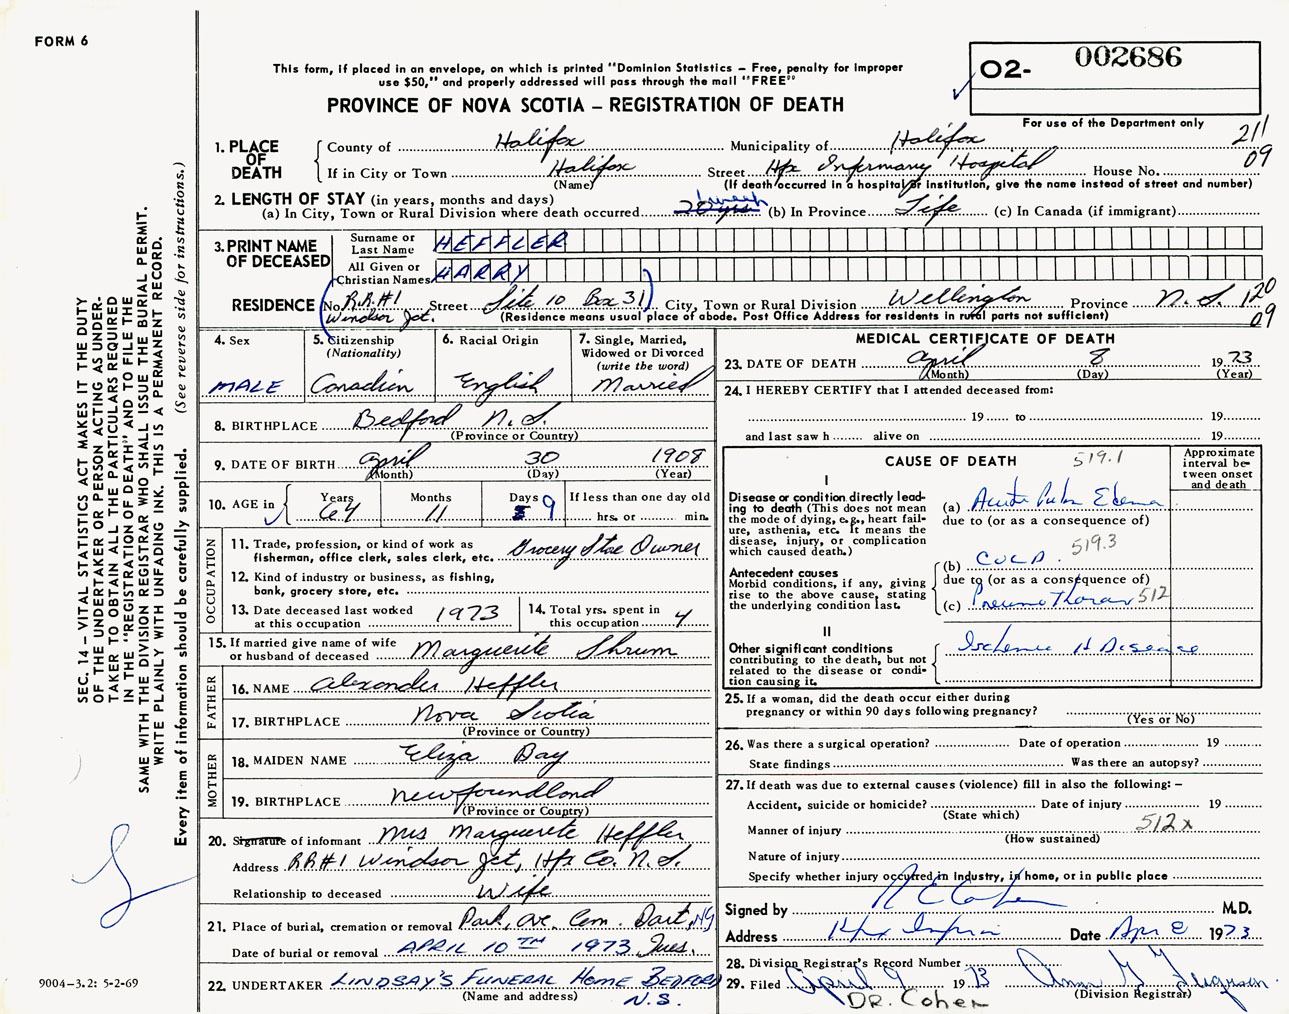 FORM 6
This form, if placed in an envelope, on which is printed "Dominion Statistics – Free, penalty for improper
use $50," and properly addressed will pass through the mail "FREE"
O2- 002686
For use of the Department only
PROVINCE OF NOVA SCOTIA – REGISTRATION OF DEATH
211
09
1. PLACE OF DEATH
County of Halifax Municipality of Halifax
If in City or Town Halifax Street Hfx Infirmary Hospital House No.
(Name) (If death occurred in a hospital or institution, give the name instead of street and number)
2. LENGTH OF STAY (in years, months and days)
(a) In City, Town or Rural Division where death occurred 1 week (b) In Province Life (c) In Canada (if immigrant)
3. PRINT NAME OF DECEASED
Surname or Last Name HEFFLER
All Given or Christian Names HARRY
RESIDENCE No. R.R.#1 Street Site 10 Box 31 City, Town or Rural Division Wellington Province N.S. 120
Windsor Jct. (Residence means usual place of abode. Post Office Address for residents in rural parts not sufficient) 09
4. Sex
MALE
5. Citizenship
(Nationality)
Canadian
6. Racial Origin
English
7. Single, Married,
Widowed or Divorced
(write the word)
Married
8. BIRTHPLACE Bedford N.S.
(Province or Country)
9. DATE OF BIRTH April 30 1908
(Month) (Day) (Year)
10. AGE in Years 64 Months 11 Days 9 If less than one day old
hrs. or min.
OCCUPATION
11. Trade, profession, or kind of work as
fisherman, office clerk, sales clerk, etc. Grocery Store Owner
12. Kind of industry or business, as fishing,
bank, grocery store, etc.
13. Date deceased last worked
at this occupation 1973
14. Total yrs. spent in
this occupation 4
15. If married give name of wife
or husband of deceased Marguerite Shrum
FATHER
16. NAME Alexander Heffler
17. BIRTHPLACE Nova Scotia
(Province or Country)
MOTHER
18. MAIDEN NAME Eliza Day
19. BIRTHPLACE Newfoundland
(Province or Country)
20. Signature of informant Mrs Marguerite Heffler
Address RR#1 Windsor Jct, Hfx Co. N.S.
Relationship to deceased Wife
21. Place of burial, cremation or removal Park, Ave, Cem. Dart, NS
Date of burial or removal APRIL 10TH 1973 Tues.
22. UNDERTAKER LINDSAY'S FUNERAL HOME BEDFORD
(Name and address) N.S.
MEDICAL CERTIFICATE OF DEATH
23. DATE OF DEATH April 8 1973
(Month) (Day) (Year)
24. I HEREBY CERTIFY that I attended deceased from:
19 to 19
and last saw h alive on 19
CAUSE OF DEATH 519.1
Approximate
interval be-
tween onset
and death
I
Disease or condition directly lead-
ing to death (This does not mean
the mode of dying, e.g., heart fail-
ure, asthenia, etc. It means the
disease, injury, or complication
which caused death.)
(a) Acute Pulm Edema
due to (or as a consequence of)
519.3
(b) COLD.
Antecedent causes
Morbid conditions, if any, giving
rise to the above cause, stating
the underlying condition last.
due to (or as a consequence of)
(c) Pneumothorax 512
II
Other significant conditions
contributing to the death, but not
related to the disease or condi-
tion causing it.
Ischemic H Disease
25. If a woman, did the death occur either during
pregnancy or within 90 days following pregnancy?
(Yes or No)
26. Was there a surgical operation? Date of operation 19
State findings Was there an autopsy?
27. If death was due to external causes (violence) fill in also the following: –
Accident, suicide or homicide? Date of injury 19
(State which)
Manner of injury 512x
(How sustained)
Nature of injury
Specify whether injury occurred in industry, in home, or in public place
Signed by R E Cohen M.D.
Address Hfx Infirm Date Apr 8 1973
28. Division Registrar's Record Number
29. Filed April 9 1973 Ferguson
(Division Registrar)
DR. Cohen
SEC. 14 – VITAL STATISTICS ACT MAKES IT THE DUTY
OF THE UNDERTAKER OR PERSON ACTING AS UNDER-
TAKER TO OBTAIN ALL THE PARTICULARS REQUIRED
IN THE "REGISTRATION OF DEATH" AND TO FILE THE
SAME WITH THE DIVISION REGISTRAR WHO SHALL ISSUE THE BURIAL PERMIT.
WRITE PLAINLY WITH UNFADING INK. THIS IS A PERMANENT RECORD.
Every item of information should be carefully supplied. (See reverse side for instructions.)
9004-3.2: 5-2-69